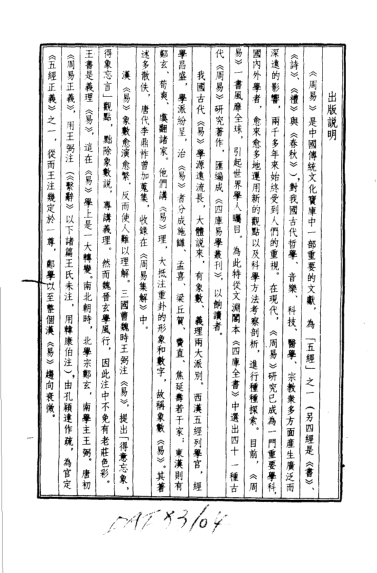 出版説明
《周易》是中國傳統文化寶庫中一部重要的文獻，為「五經」之一（另四經是《書》、
《詩》、《禮》與《春秋》），對我國古代哲學、音樂、科技、醫學、宗教衆多方面產生廣泛而
深遠的影響，兩千多年來始終受到人們的重視。在現代，《周易》研究已成為一門重要學科，
國内外學者，愈來愈多地運用新的觀點以及科學方法考察剖析，進行種種探索。目前，《周
易》一書風靡全球，引起世界學人矚目。為此特從文淵閣本《四庫全書》中選出四十一種古
代《周易》研究著作，匯編成《四庫易學叢刊》，以餉讀者。
我國古代《易》學源遠流長，大體說來，有象數、義理兩大派别。西漢五經列學官，經
學昌盛，學派紛呈，治《易》者分成施讎、孟喜、梁丘賀、費直、焦延壽若干家；東漢則有
鄭玄、荀爽、虞翻諸家，他們講《易》理，大抵注重卦的形象和數字，故稱象數《易》。其著
述多散佚，唐代李鼎祚曾加蒐集，收錄在《周易集解》中。
漢《易》象數愈演愈繁，反而使人難以理解，三國曹魏時王弼注《易》，提出「得意忘象，
得象忘言」觀點，點除象數說，專講義理。然而魏晉玄學風行，因此注中不免有老莊色彩。
王書是義理《易》，這在《易》學上是一大轉變。南北朝時，北學宗鄭玄，南學主王弼。唐初
《周易正義》，用王弼注（《繫辭》以下諸篇王氏未注，用韓康伯注），由孔穎達作疏，為官定
《五經正義》之一，從而王注幾定於一尊，鄭學以至整個漢《易》趨向衰微。